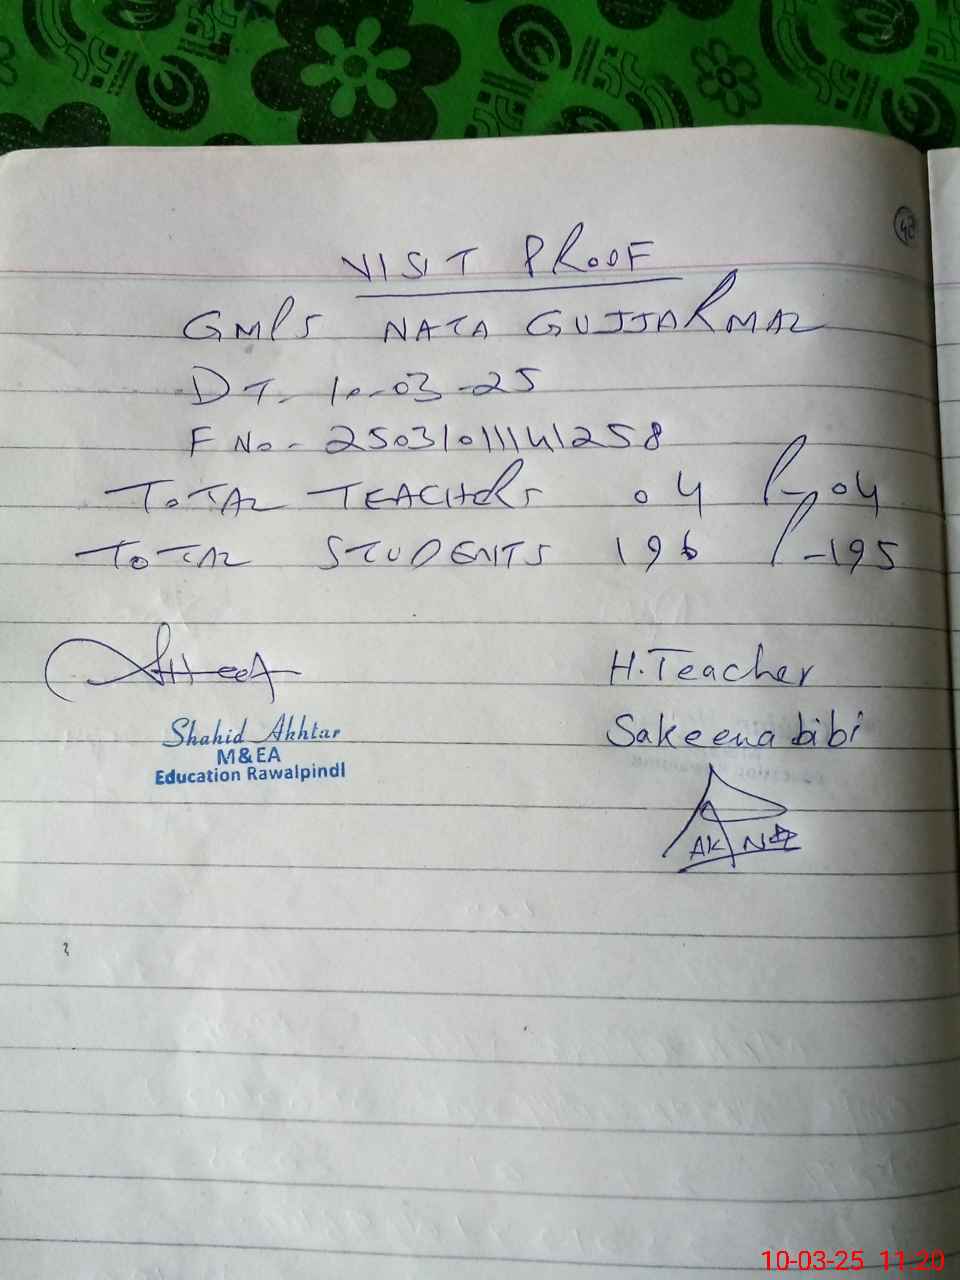 42
VISIT PROOF
GMPS NATA GUJJARMAL
DT. 10-03-25
F No- 25031011141258
TOTAL TEACHERS 04 P-04
TOTAL STUDENTS 196 P-195
H. Teacher
Sakeena bibi
Shahid Akhtar
M&EA
Education Rawalpindi
10-03-25 11:20